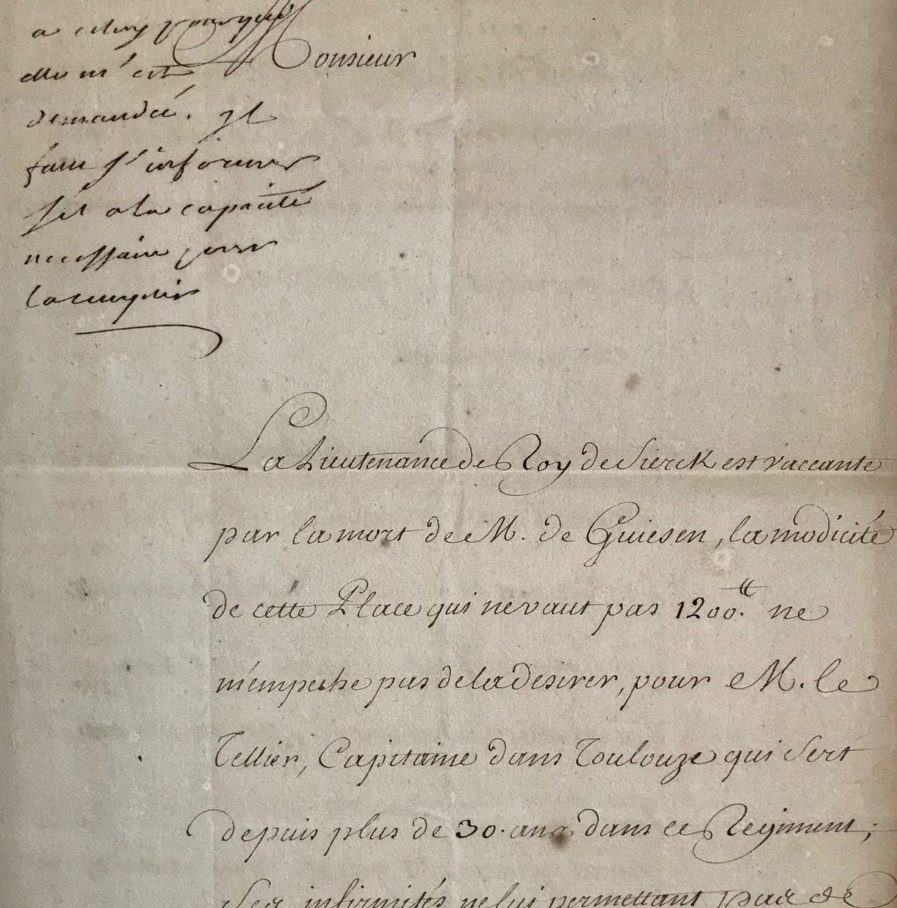 a celuy pour qui
elle m'est
demandée. jl
faut s'informer
s'il a la capacité
necessaire pour
la remplir
Monsieur
La Lieutenance de Roy de Sierck est vaccante
par la mort de M. de Guiesen, la modicité
de cette Place qui ne vaut pas 1200.tt ne
m'empeche pas de la desirer, pour M. le
Tellier, Capitaine dans Toulouze qui sert
depuis plus de 30. ans dans ce Regiment;
Ses infirmités ne lui permettant pas de